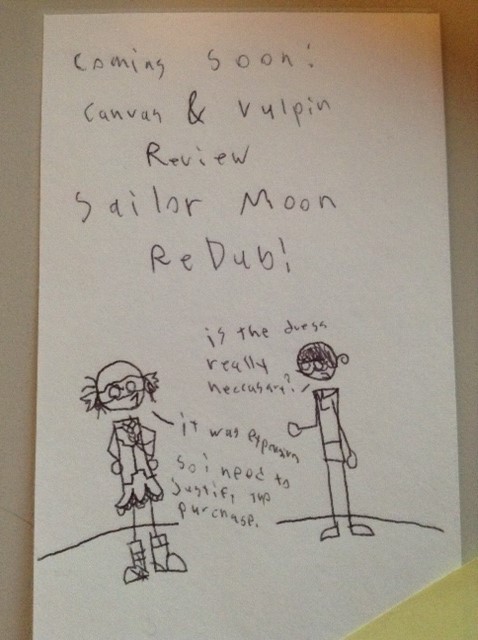 Coming Soon!
Canvas & Vulpin
Review
Sailor Moon
ReDub!
is the dress
really
neccasary?
it was expensive
so i need to
justify the
purchase.